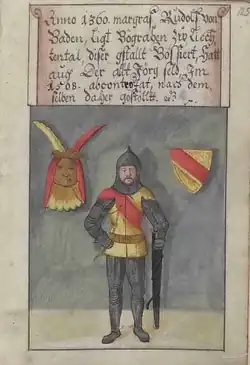 Anno 1360. margraf Rudolf von
Baden, ligt Begraben Zů Liech
tental, diser gstallt Bossiert, hatt
auch Der allt Jörg seld, Im
1508. abcontrofat, nach dem
selben daher gestellt.